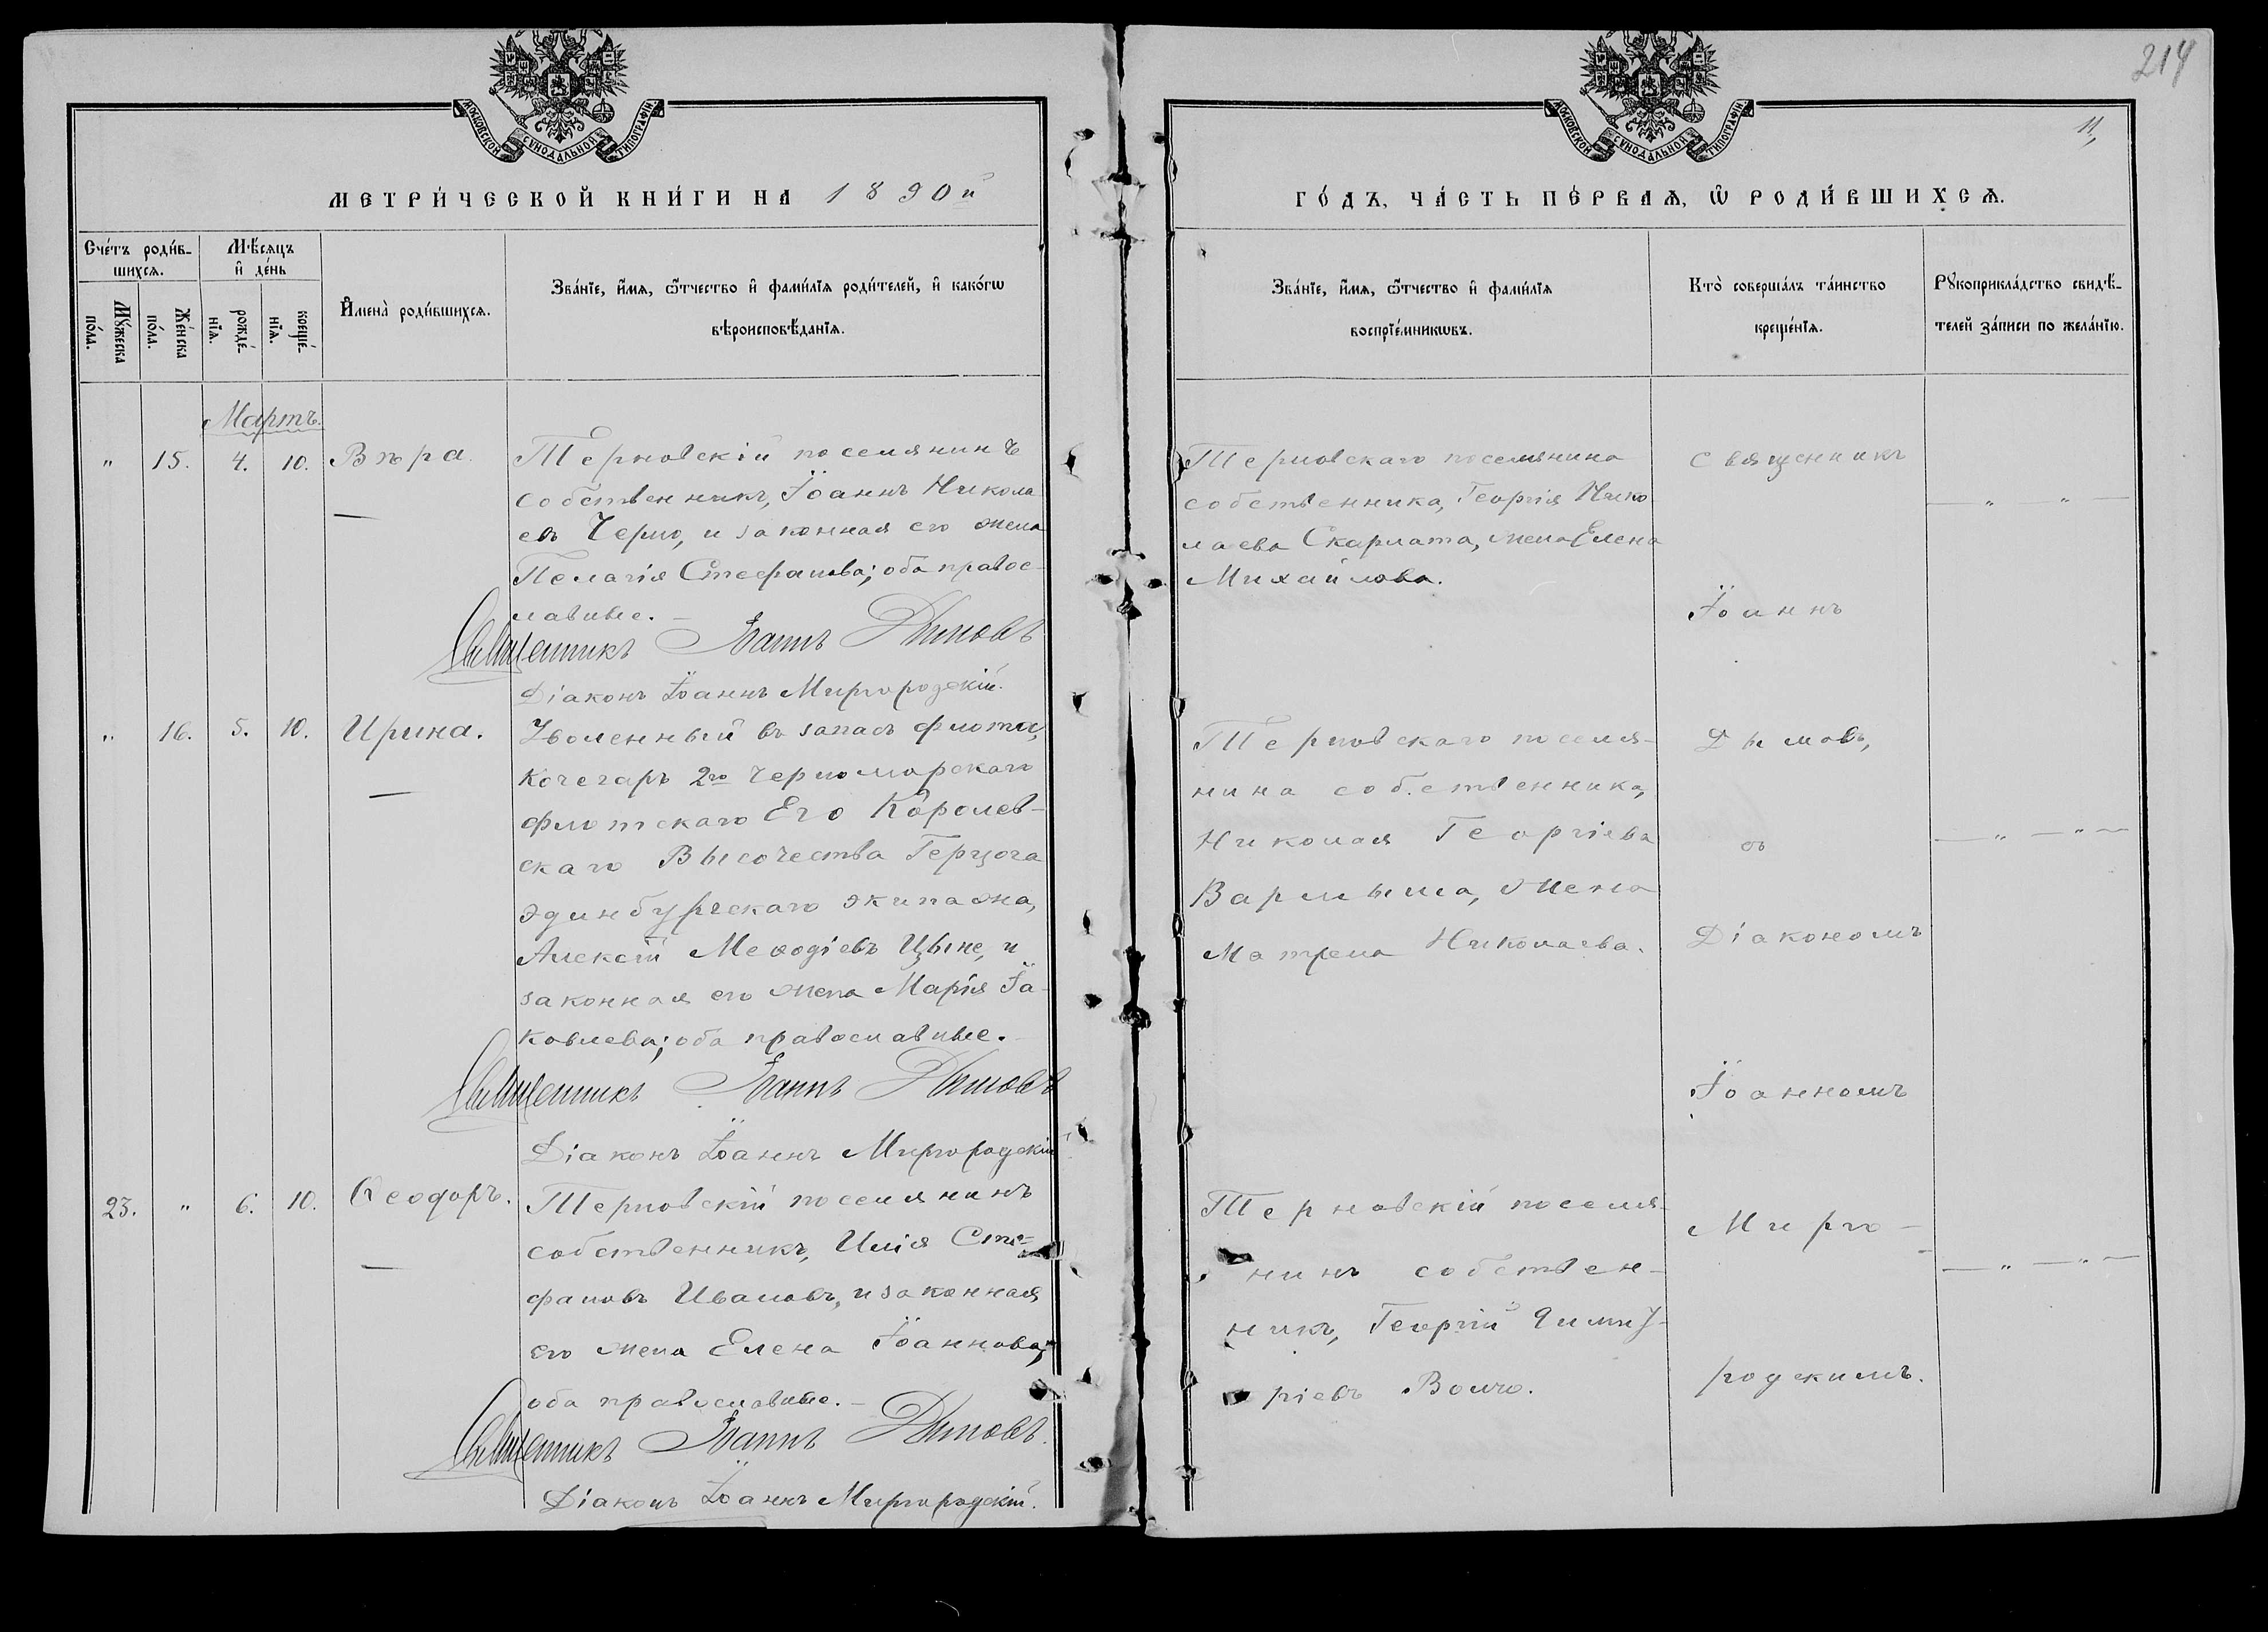 214
11,
МОСКОВСКОЙ СѴНОДАЛЬНОЙ ТИПОГРАФІИ
МОСКОВСКОЙ СѴНОДАЛЬНОЙ ТИПОГРАФІИ
МЕТРИ́ЧЕСКОЙ КНИ́ГИ НА 1890й
ГО́ДЪ, ЧА́СТЬ ПЕ́РВАѦ, Ѽ РОДИ́ВШИХСѦ.
Сче́тъ роди́в-
шихсѧ.
Мꙋ́жеска
по́ла.
Же́нска
по́ла.
Мѣ́сѧцъ
и҆ де́нь
рожде́-
нїѧ.
креще́-
нїѧ.
И҆мена̀ роди́вшихсѧ.
Зва́нїе, и҆́мѧ, ѻ҆́тчество и҆ фами́лїѧ роди́телей, и҆ како́гѡ
вѣроисповѣ́данїѧ.
Зва́нїе, и҆́мѧ, ѻ҆́тчество и҆ фами́лїѧ
воспрїе́мникѡвъ.
Кто̀ соверша́лъ та́инство
креще́нїѧ.
Рꙋкоприкла́дство свидѣ́-
телей за́писи по жела́нїю.
Мартъ.
" 15. 4. 10. Вѣра.
Терновскій поселянинъ
собственникъ, Іоаннъ Никола
евъ Черно, и законная его жена
Пелагія Стефанова; оба правос-
лавные.
Священникъ Іоаннъ Дымовъ
Діаконъ Іоаннъ Миргородскій.
Терновскаго поселянина
собственника, Георгія Нико
лаева Скарлата, жена Елена
Михайлова.
" 16. 5. 10. Ирина.
Уволенный въ запасъ флота,
кочегаръ 2го Черноморскаго
флотскаго Его Королев-
скаго Высочества Герцога
Эдинбургскаго экипажа,
Алексій Меѳодіевъ Цыне, и
законная его жена Марія Іа-
ковлева; оба православные.
Священникъ Іоаннъ Дымовъ
Діаконъ Іоаннъ Миргородскій
Терновскаго поселя-
нина собственника,
Николая Георгіева
Вармыша, жена
Матрена Николаева.
23. " 6. 10. Ѳеодоръ.
Терновскій поселянинъ
собственникъ, Илія Сте-
фановъ Ивановъ, и законная
его жена Елена Іоаннова;
оба православные.
Священникъ Іоаннъ Дымовъ.
Діаконъ Іоаннъ Миргородскій.
Терновскій поселя-
нинъ собствен-
никъ, Георгій Димит-
ріевъ Волчо.
Священникъ
Іоаннъ
Дымовъ,
съ
Діакономъ
Іоанномъ
Мирго-
родскимъ.
— " — " —
— " — " —
— " — " —